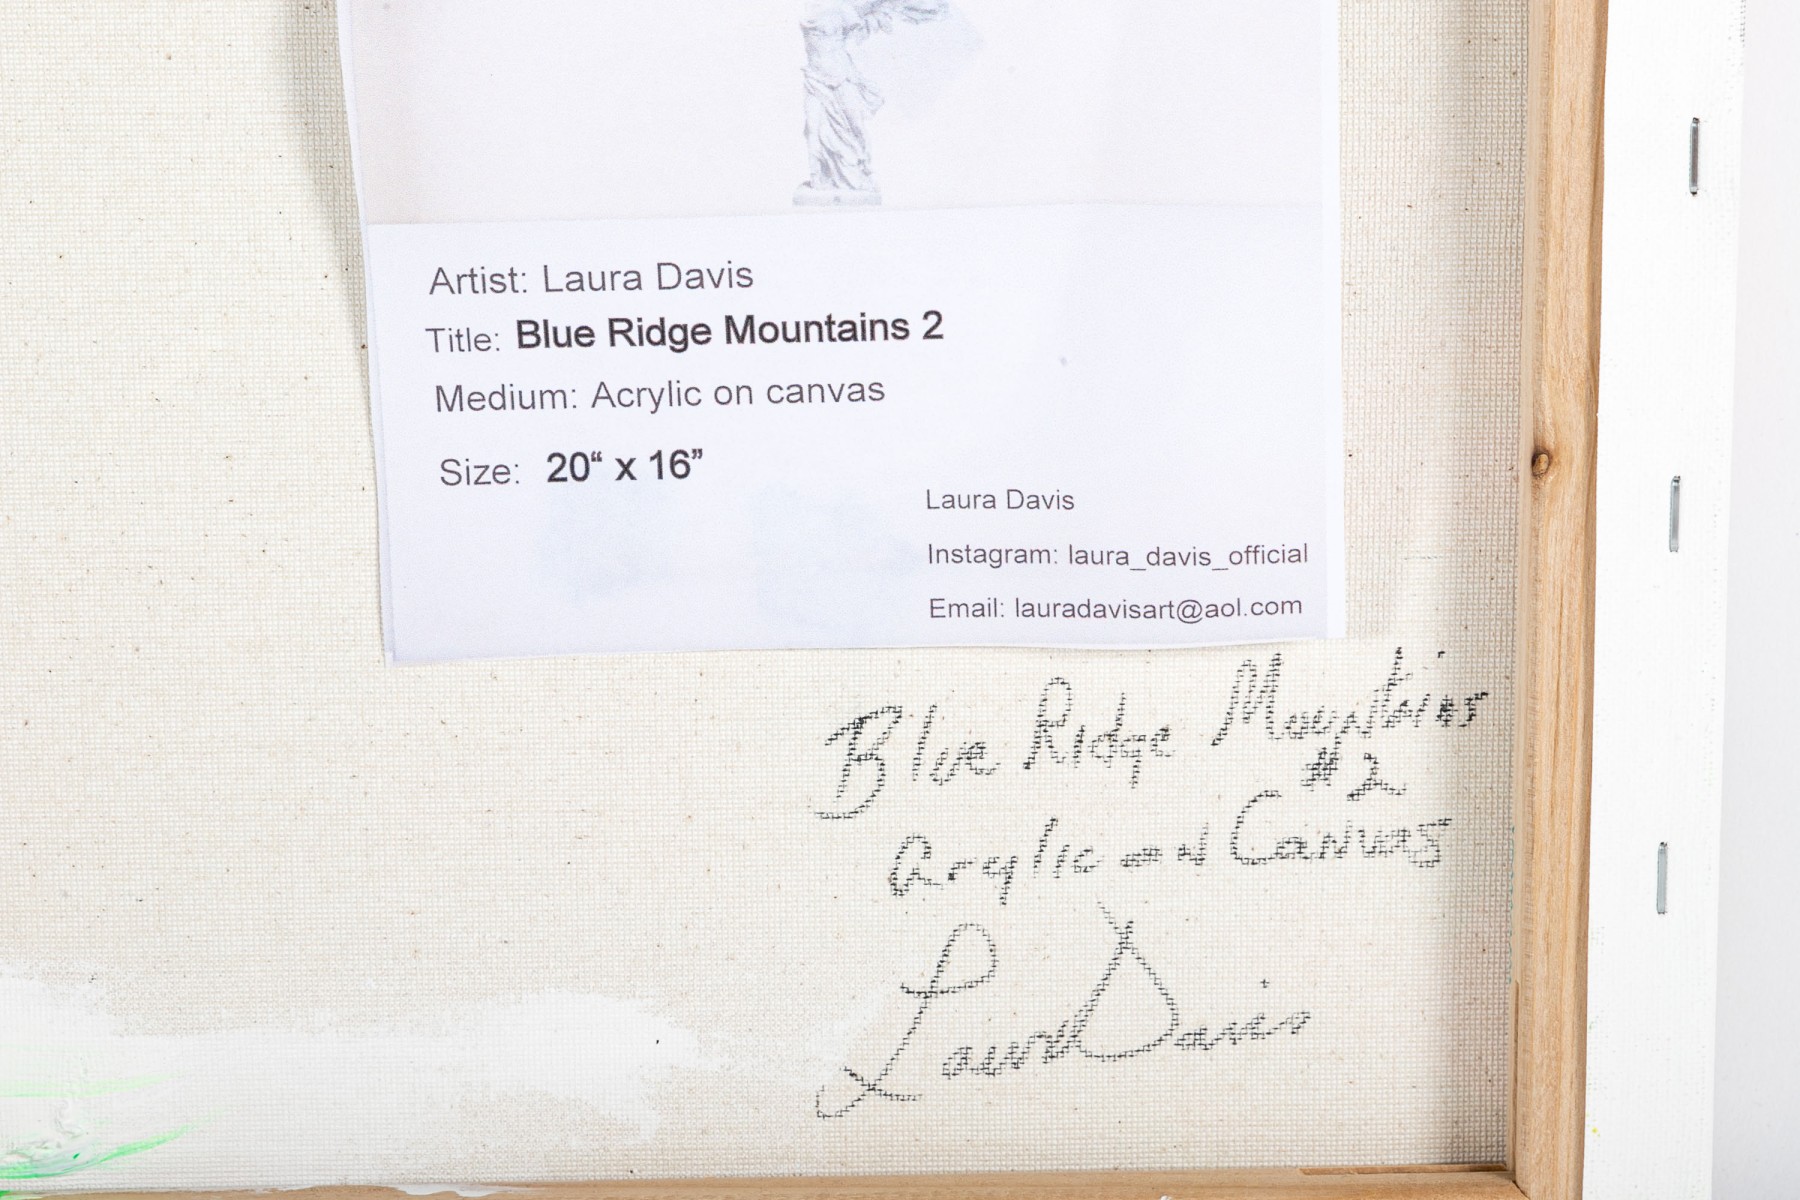 Artist: Laura Davis
Title: Blue Ridge Mountains 2
Medium: Acrylic on canvas
Size: 20“ x 16”
Laura Davis
Instagram: laura_davis_official
Email: lauradavisart@aol.com
Blue Ridge Mountains
#2
Acrylic and Canvas
Laura Davis